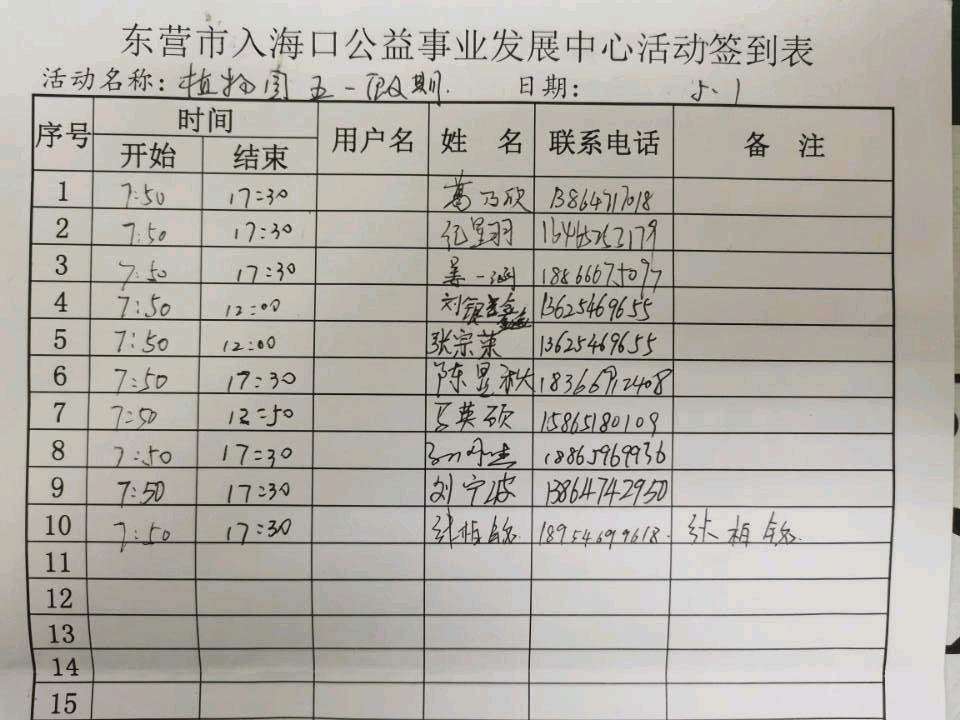 东营市入海口公益事业发展中心活动签到表
活动名称：植物园五一假期. 日期： 5.1
序号 时间 用户名 姓 名 联系电话 备 注
开始 结束
1 7:50 17:30 葛乃欣 13864717018
2 7:50 17:30 纪星羽
3 7:50 17:30 姜一涵 18866675097
4 7:50 12:00 刘银 13625469655
5 7:50 12:00 张宗莱 13625469655
6 7:50 17:30 陈显秋 18366912408
7 7:50 12:50 英硕 15865180109
8 7:50 17:30 18865969936
9 7:50 17:30 刘宁波 13864742950
10 7:50 17:30 张柏铭 18954699618. 张柏铭
11
12
13
14
15